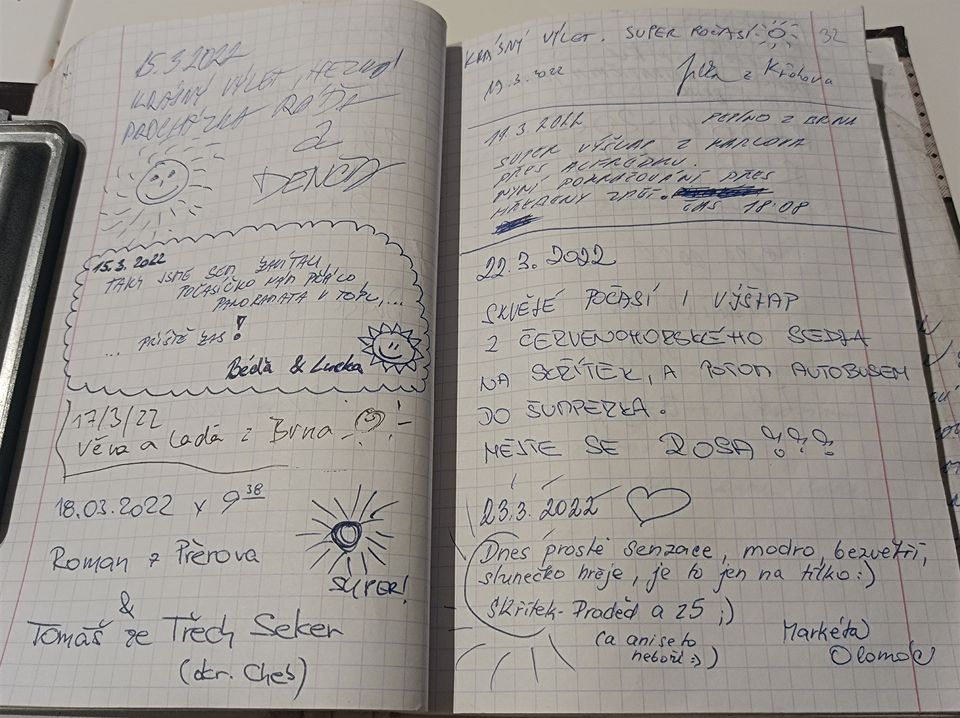 15.3.2022
KRÁSNÝ VÝLET HEZKÁ
PROCHÁZKA RÁĎA
a
DENČA
15.3.2022
TAKY JSME SEM ZAVÍTALI,
POČASÍČKO NÁM PŘÁLO
PANORAMATA V TOPU,...
... PŘÍŠTĚ ZAS!
Béďa & Lucka
17/3/22
Věra a Laďa z Brna
18.03.2022 v 9 38
Roman z Přerova
SUPER!
&
Tomáš ze Třech Seker
(okr. Cheb)
KRÁSNÝ VÝLET. SUPER POČASÍ 32
19.3.2022 z Křohova
19.3.2022 PEPÍNO Z BRNA
SUPER VÝŠLAP Z KARLOVA
PŘES ALFRÉDKU.
NYNÍ POKRAČOVÁNÍ PŘES
ZPĚT.
ČAS 18:08
22.3.2022
SKVĚLÉ POČASÍ I VÝŠLAP
Z ČERVENOHORSKÉHO SEDLA
NA SKŘÍTEK, A POTOM AUTOBUSEM
DO ŠUMPERKA.
MĚJTE SE ROSA!!!
23.3.2022
Dnes prostě senzace, modro, bezvětří,
slunečko hřeje, je to jen na tílko :)
Skřítek-Praděd a zS ;)
(a ani se to
neboří :))
Markéta
Olomouc